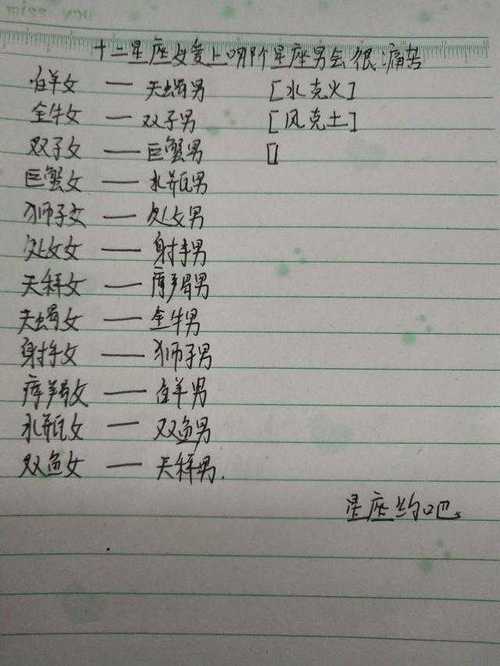 十二星座女爱上哪个星座男会很痛苦
白羊女 — 天蝎男 [水克火]
金牛女 — 双子男 [风克土]
双子女 — 巨蟹男 []
巨蟹女 — 水瓶男
狮子女 — 处女男
处女女 — 射手男
天秤女 — 摩羯男
天蝎女 — 金牛男
射手女 — 狮子男
摩羯女 — 白羊男
水瓶女 — 双鱼男
双鱼女 — 天秤男.
星座约吧。